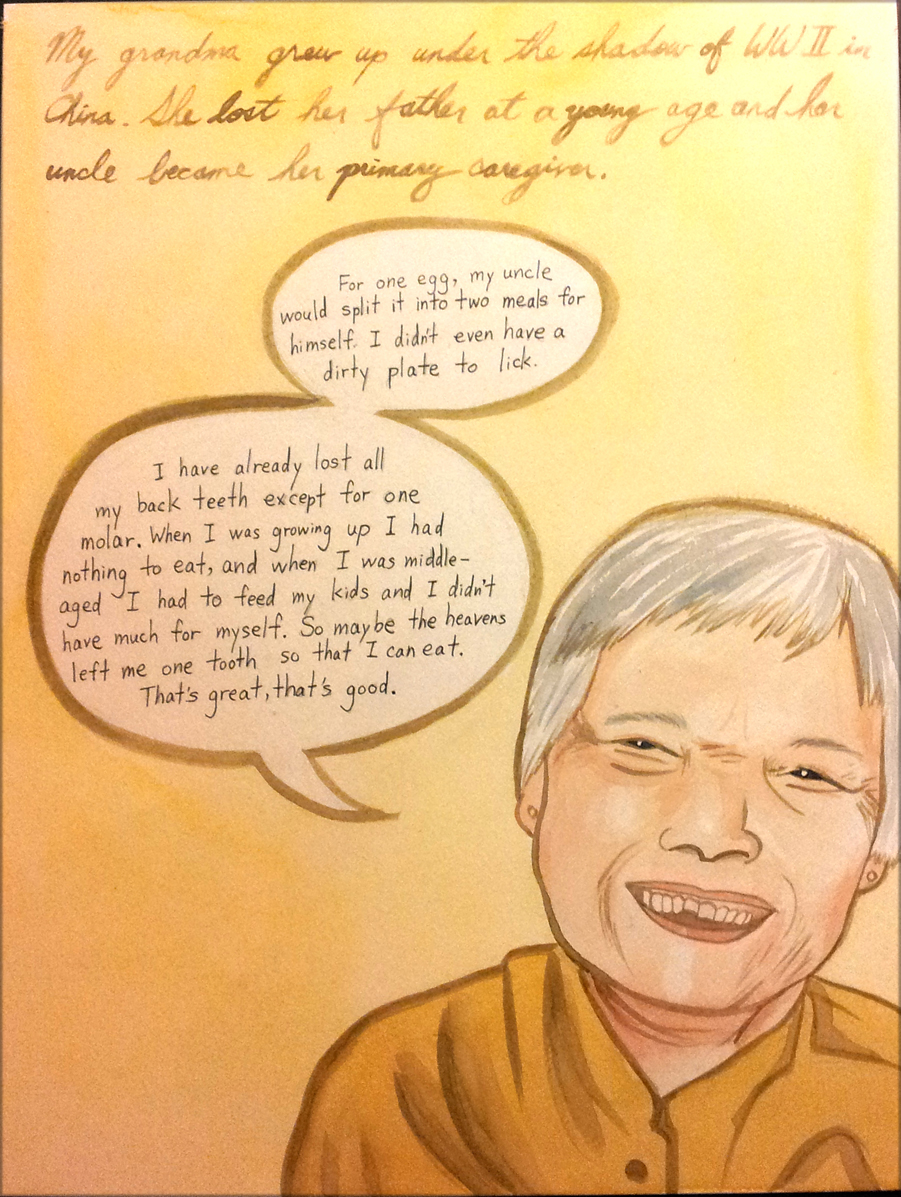 My grandma grew up under the shadow of WWII in
China. She lost her father at a young age and her
uncle became her primary caregiver.
For one egg, my uncle
would split it into two meals for
himself. I didn't even have a
dirty plate to lick.
I have already lost all
my back teeth except for one
molar. When I was growing up I had
nothing to eat, and when I was middle-
aged I had to feed my kids and I didn't
have much for myself. So maybe the heavens
left me one tooth so that I can eat.
That's great, that's good.